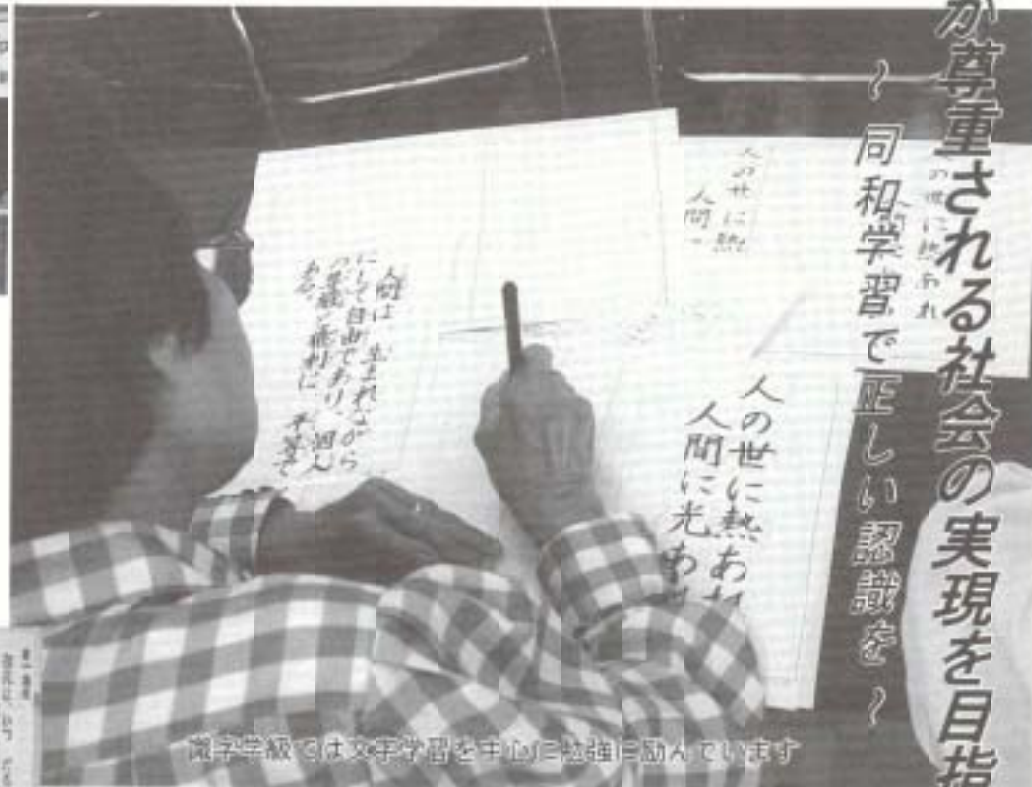 が尊重される社会の実現を目指
~ 同和学習で正しい認識を ~
の世に熱あれ
人の世に熱
人間
人の世に熱あれ
人間に光あ
人間は 生まれながら
にして自由であり、個人
の尊厳と権利に 平等で
ある。
識字学級では文字学習を中心に勉強に励んでいます